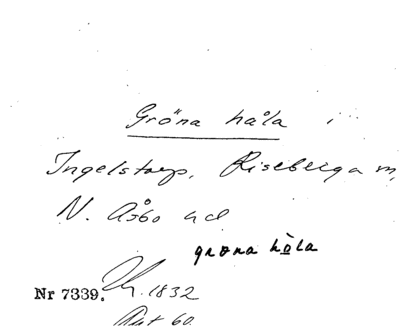 Gröna håla i
Ingelstorp, Riseberga m,
N. Åsbo hd
grøna håla
Nr 7339. 1832
Akt 60.